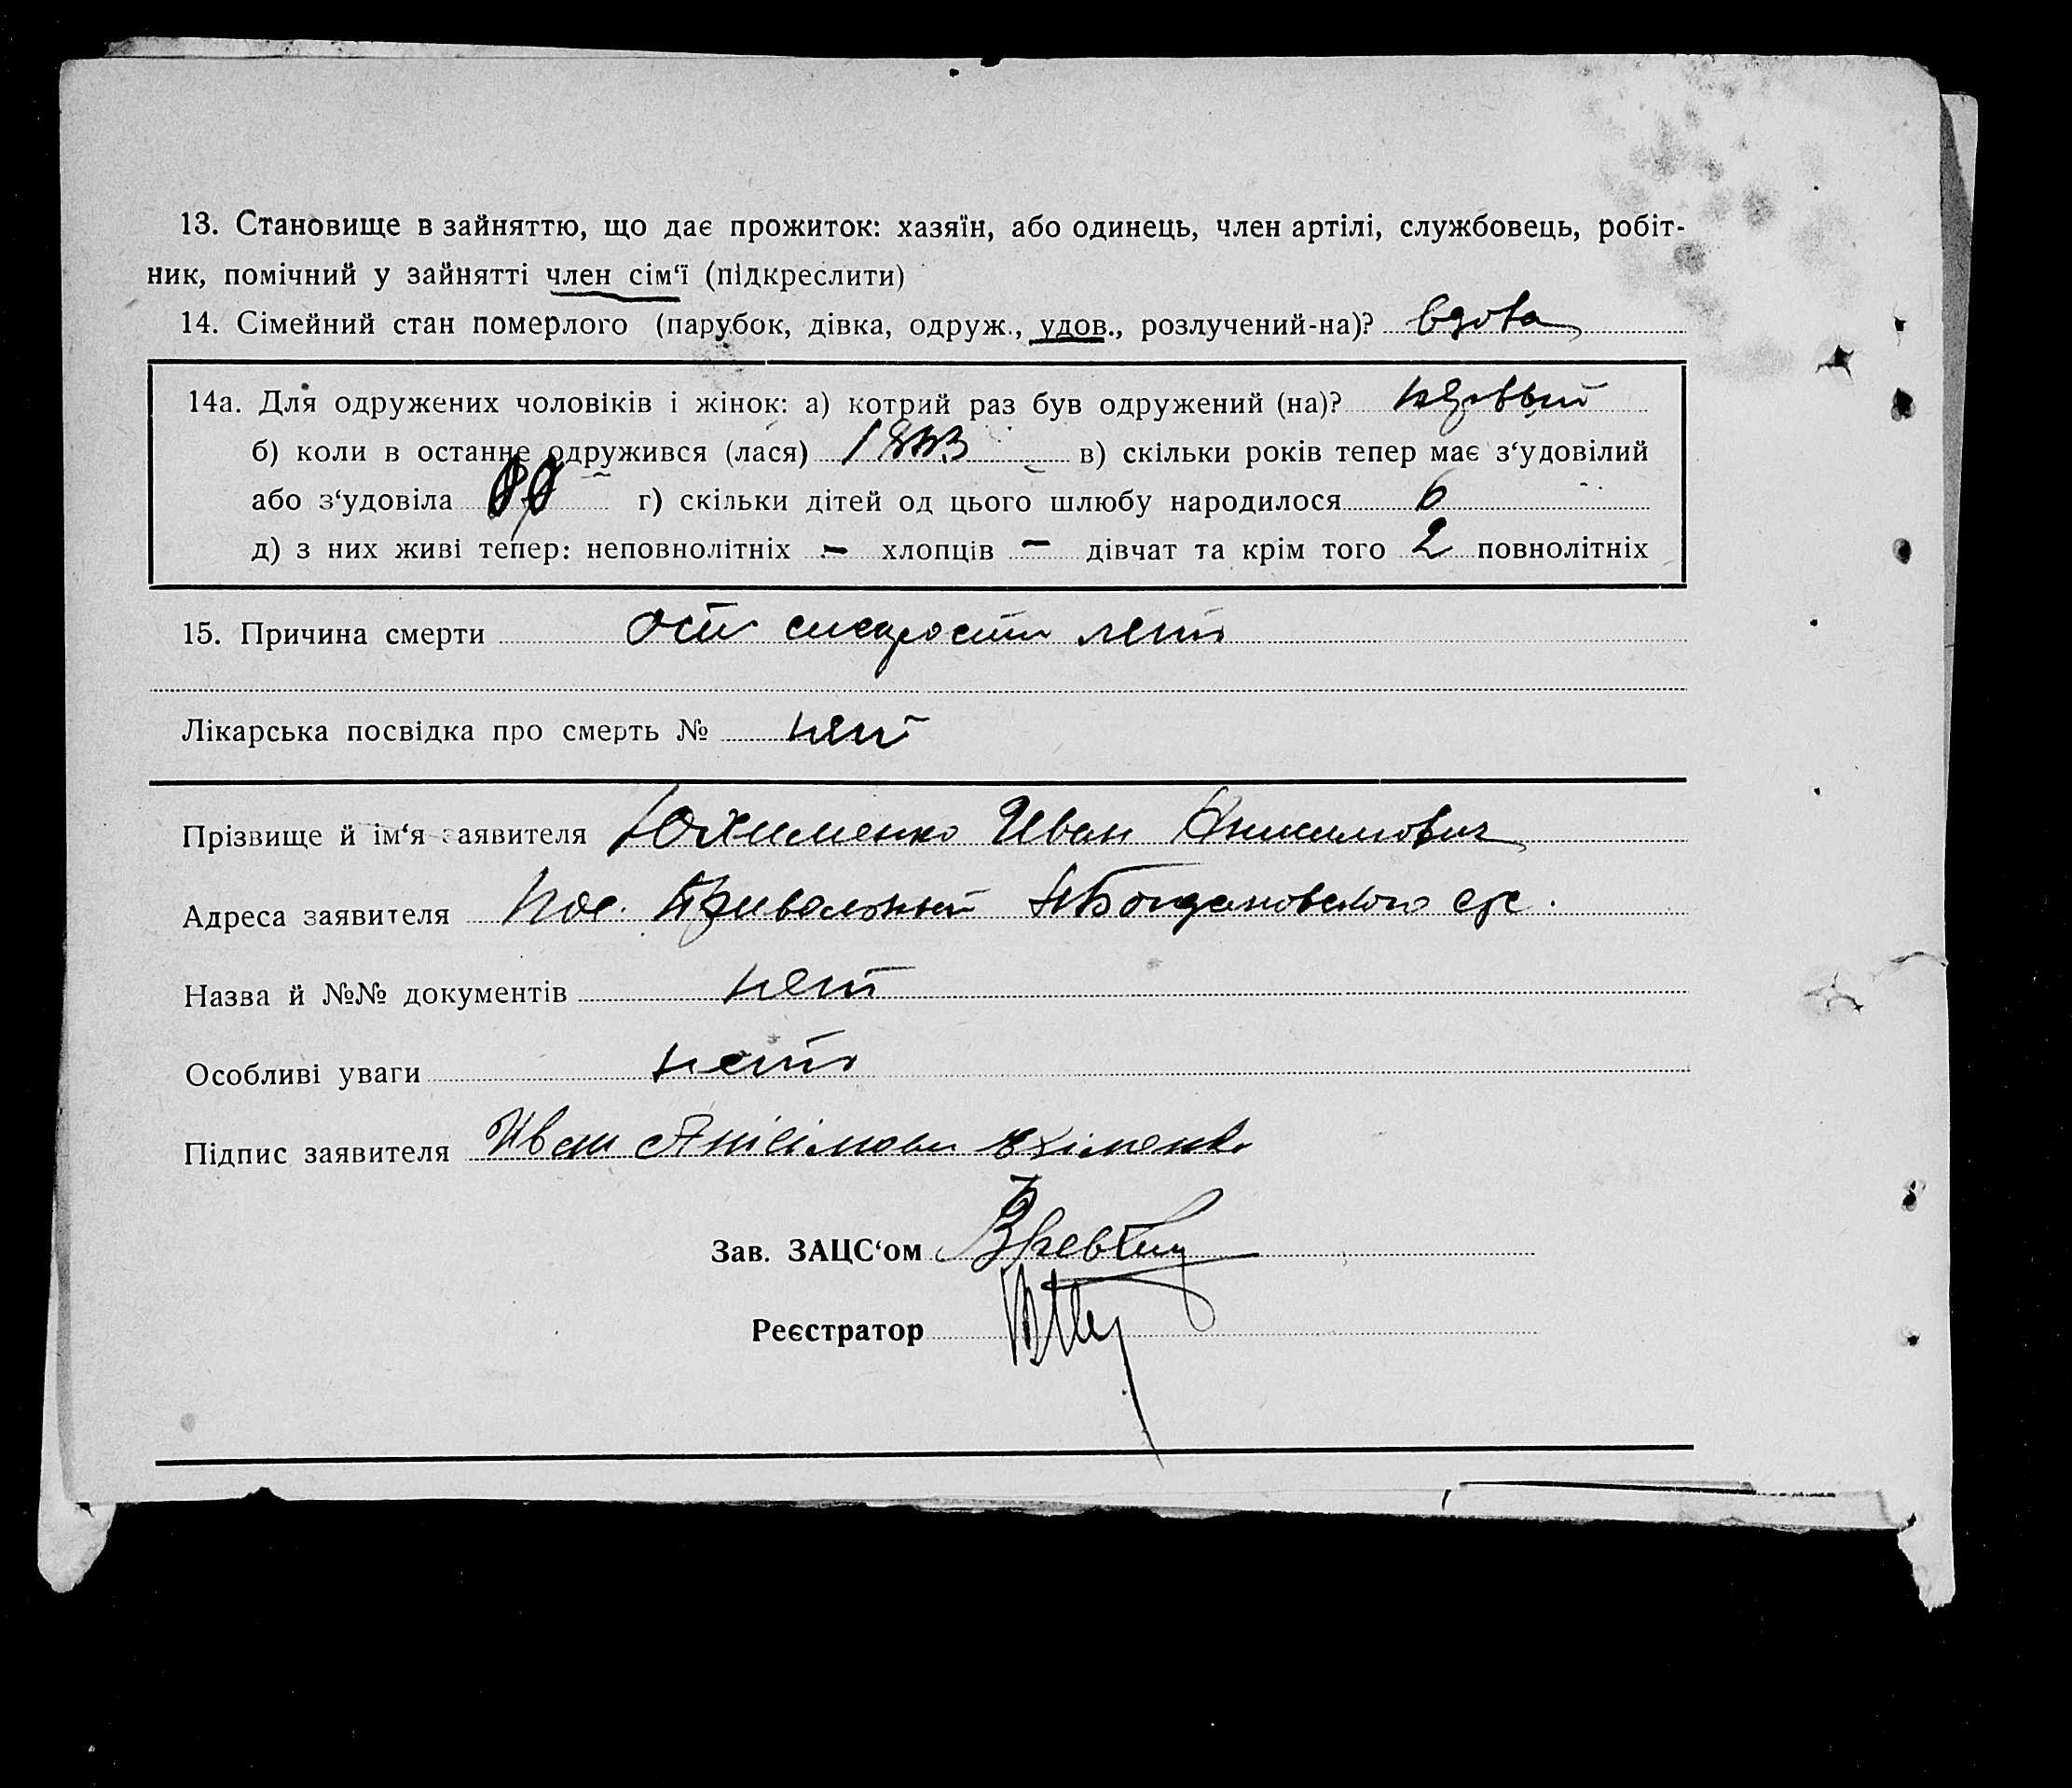 13. Становище в зайняттю, що дає прожиток: хазяїн, або одинець, член артілі, службовець, робіт-
ник, помічний у зайнятті член сім‘ї (підкреслити)
14. Сімейний стан померлого (парубок, дівка, одруж., удов., розлучений-на)? вдова
14а. Для одружених чоловіків і жінок: а) котрий раз був одружений (на)? первый
б) коли в останнє одружився (лася) в) скільки років тепер має з‘удовілий
або з‘удовіла г) скільки дітей од цього шлюбу народилося 6
д) з них живі тепер: неповнолітніх - хлопців - дівчат та крім того 2 повнолітніх
15. Причина смерти от старости лет
Лікарська посвідка про смерть № нет
Прізвище й ім‘я заявителя Юхименко Иван Анисимович
Адреса заявителя пос. Привольный НБогдановского с/с.
Назва й №№ документів нет
Особливі уваги нет
Підпис заявителя Иван
Зав. ЗАЦС‘ом
Реєстратор